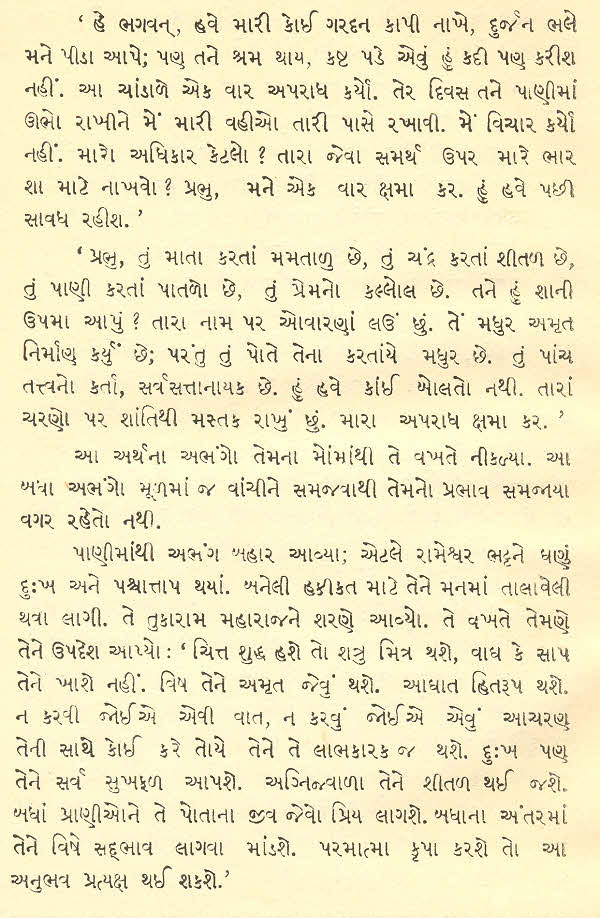 ‘ હે ભગવન્, હવે મારી કોઈ ગરદન કાપી નાખે, દુર્જન ભલે
મને પીડા આપે; પણ તને શ્રમ થાય, કષ્ટ પડે એવું હું કદી પણ કરીશ
નહીં. આ ચાંડાળે એક વાર અપરાધ કર્યો. તેર દિવસ તને પાણીમાં
ઊભો રાખીને મેં મારી વહીઓ તારી પાસે રખાવી. મેં વિચાર કર્યો
નહીં. મારો અધિકાર કેટલો ? તારા જેવા સમર્થ ઉપર મારે ભાર
શા માટે નાખવો ? પ્રભુ, મને એક વાર ક્ષમા કર. હું હવે પછી
સાવધ રહીશ. ’
‘ પ્રભુ, તું માતા કરતાં મમતાળુ છે, તું ચંદ્ર કરતાં શીતળ છે,
તું પાણી કરતાં પાતળો છે, તું પ્રેમનો કલ્લોલ છે. તને હું શાની
ઉપમા આપું ? તારા નામ પર ઓવારણાં લઉં છું. તેં મધુર અમૃત
નિર્માણ કર્યું છે; પરંતુ તું પોતે તેના કરતાંયે મધુર છે. તું પાંચ
તત્ત્વનો કર્તા, સર્વસત્તાનાયક છે. હું હવે કાંઈ બોલતો નથી. તારાં
ચરણો પર શાંતિથી મસ્તક રાખું છું. મારા અપરાધ ક્ષમા કર. ’
આ અર્થના અભંગો તેમના મોંમાંથી તે વખતે નીકળ્યા. આ
બધા અભંગો મૂળમાં જ વાંચીને સમજવાથી તેમનો પ્રભાવ સમજાયા
વગર રહેતો નથી.
પાણીમાંથી અભંગ બહાર આવ્યા; એટલે રામેશ્વર ભટ્ટને ઘણું
દુઃખ અને પશ્ચાત્તાપ થયાં. બનેલી હકીકત માટે તેને મનમાં તાલાવેલી
થવા લાગી. તે તુકારામ મહારાજને શરણે આવ્યો. તે વખતે તેમણે
તેને ઉપદેશ આપ્યો : ‘ ચિત્ત શુદ્ધ હશે તો શત્રુ મિત્ર થશે, વાઘ કે સાપ
તેને ખાશે નહીં. વિષ તેને અમૃત જેવું થશે. આઘાત હિતરૂપ થશે.
ન કરવી જોઈએ એવી વાત, ન કરવું જોઈએ એવું આચરણ
તેની સાથે કોઈ કરે તોયે તેને તે લાભકારક જ થશે. દુઃખ પણ
તેને સર્વ સુખફળ આપશે. અગ્નિજ્વાળા તેને શીતળ થઈ જશે.
બધાં પ્રાણીઓને તે પોતાના જીવ જેવો પ્રિય લાગશે. બધાના અંતરમાં
તેને વિષે સદ્ભાવ લાગવા માંડશે. પરમાત્મા કૃપા કરશે તો આ
અનુભવ પ્રત્યક્ષ થઈ શકશે.’